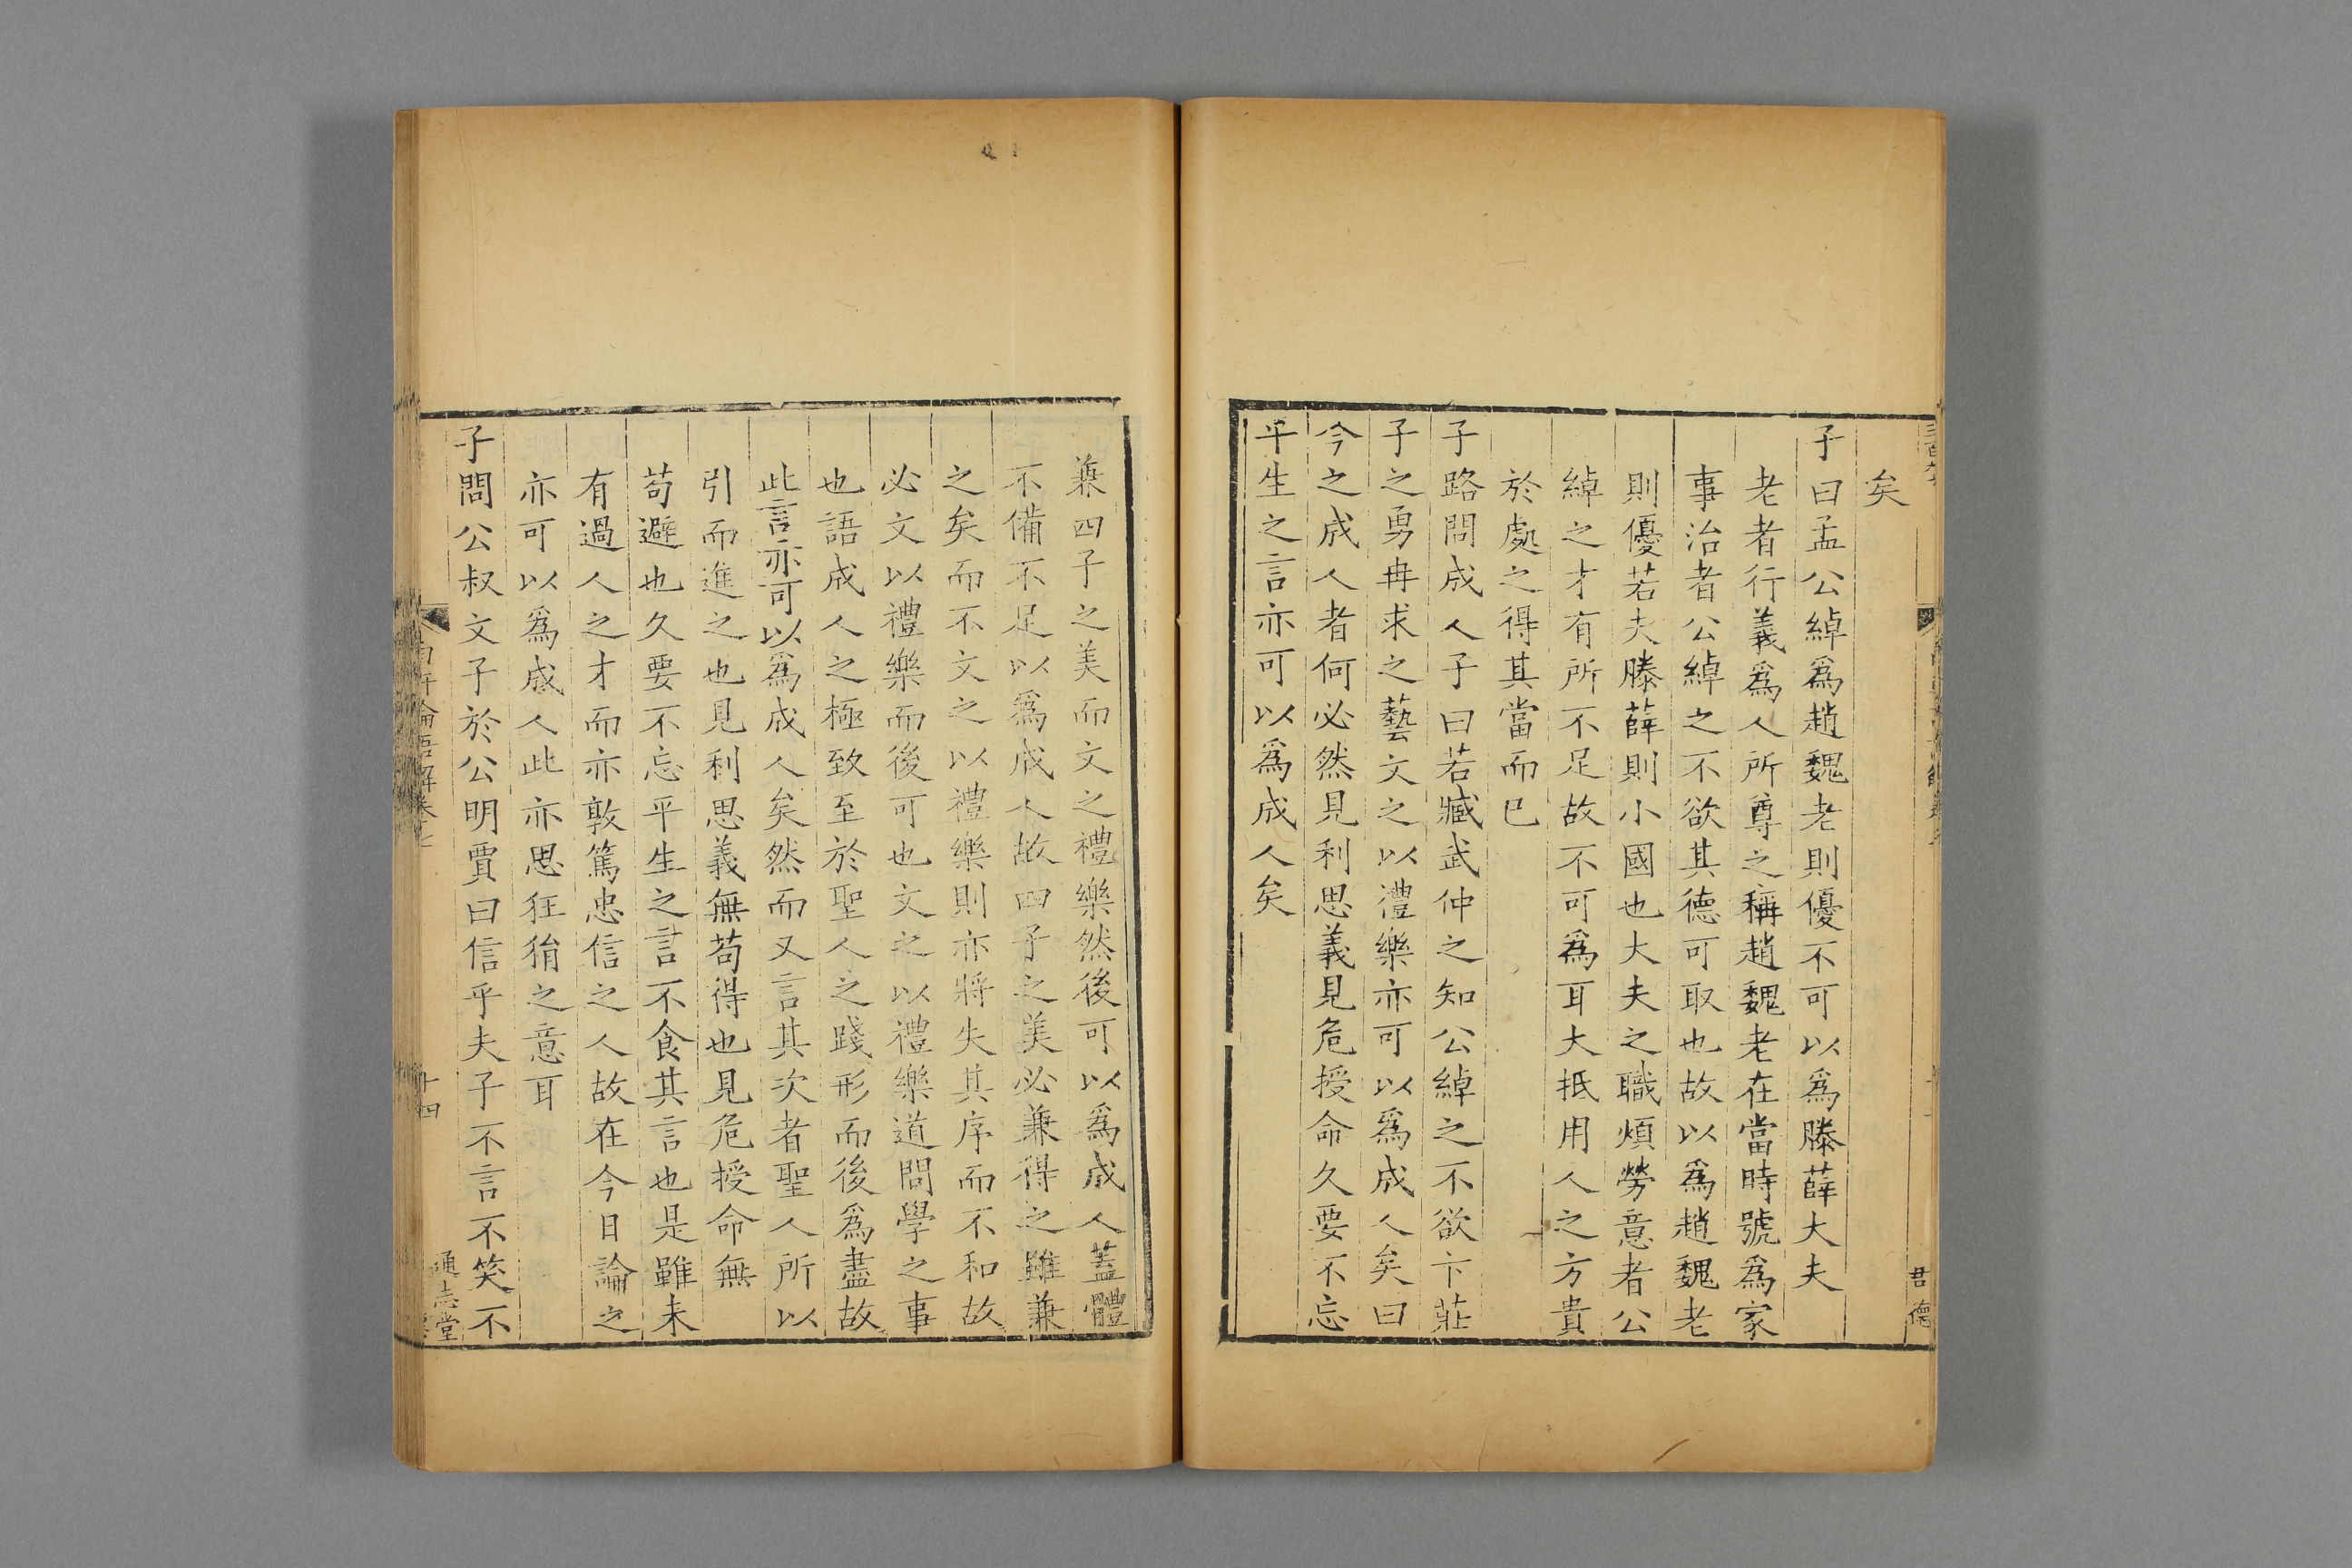 矣
子曰孟公綽爲趙魏老則優不可以爲滕薛大夫
老者行義爲人所尊之稱趙魏老在當時號爲家
事治者公綽之不欲其德可取也故以爲趙魏老
則優若夫滕薛則小國也大夫之職煩勞意者公
綽之才有所不足故不可爲耳大抵用人之方貴
於處之得其當而已
子路問成人子曰若臧武仲之知公綽之不欲卞莊
子之勇冉求之藝文之以禮樂亦可以爲成人矣曰
今之成人者何必然見利思義見危授命久要不忘
平生之言亦可以爲成人矣
兼四子之美而文之禮樂然後可以爲成人蓋體
不備不足以爲成人故四子之美必兼得之雖兼
之矣而不文之以禮樂則亦將失其序而不和故
必文以禮樂而後可也文之以禮樂道問學之事
也語成人之極致至於聖人之踐形而後爲盡故
此言亦可以爲成人矣然而又言其次者聖人所以
引而進之也見利思義無苟得也見危授命無
苟避也久要不忘平生之言不食其言也是雖未
有過人之才而亦敦篤忠信之人故在今日論之
亦可以爲成人此亦思狂狷之意耳
子問公叔文子於公明賈曰信乎夫子不言不笑不
論語解卷七
十四
通志堂